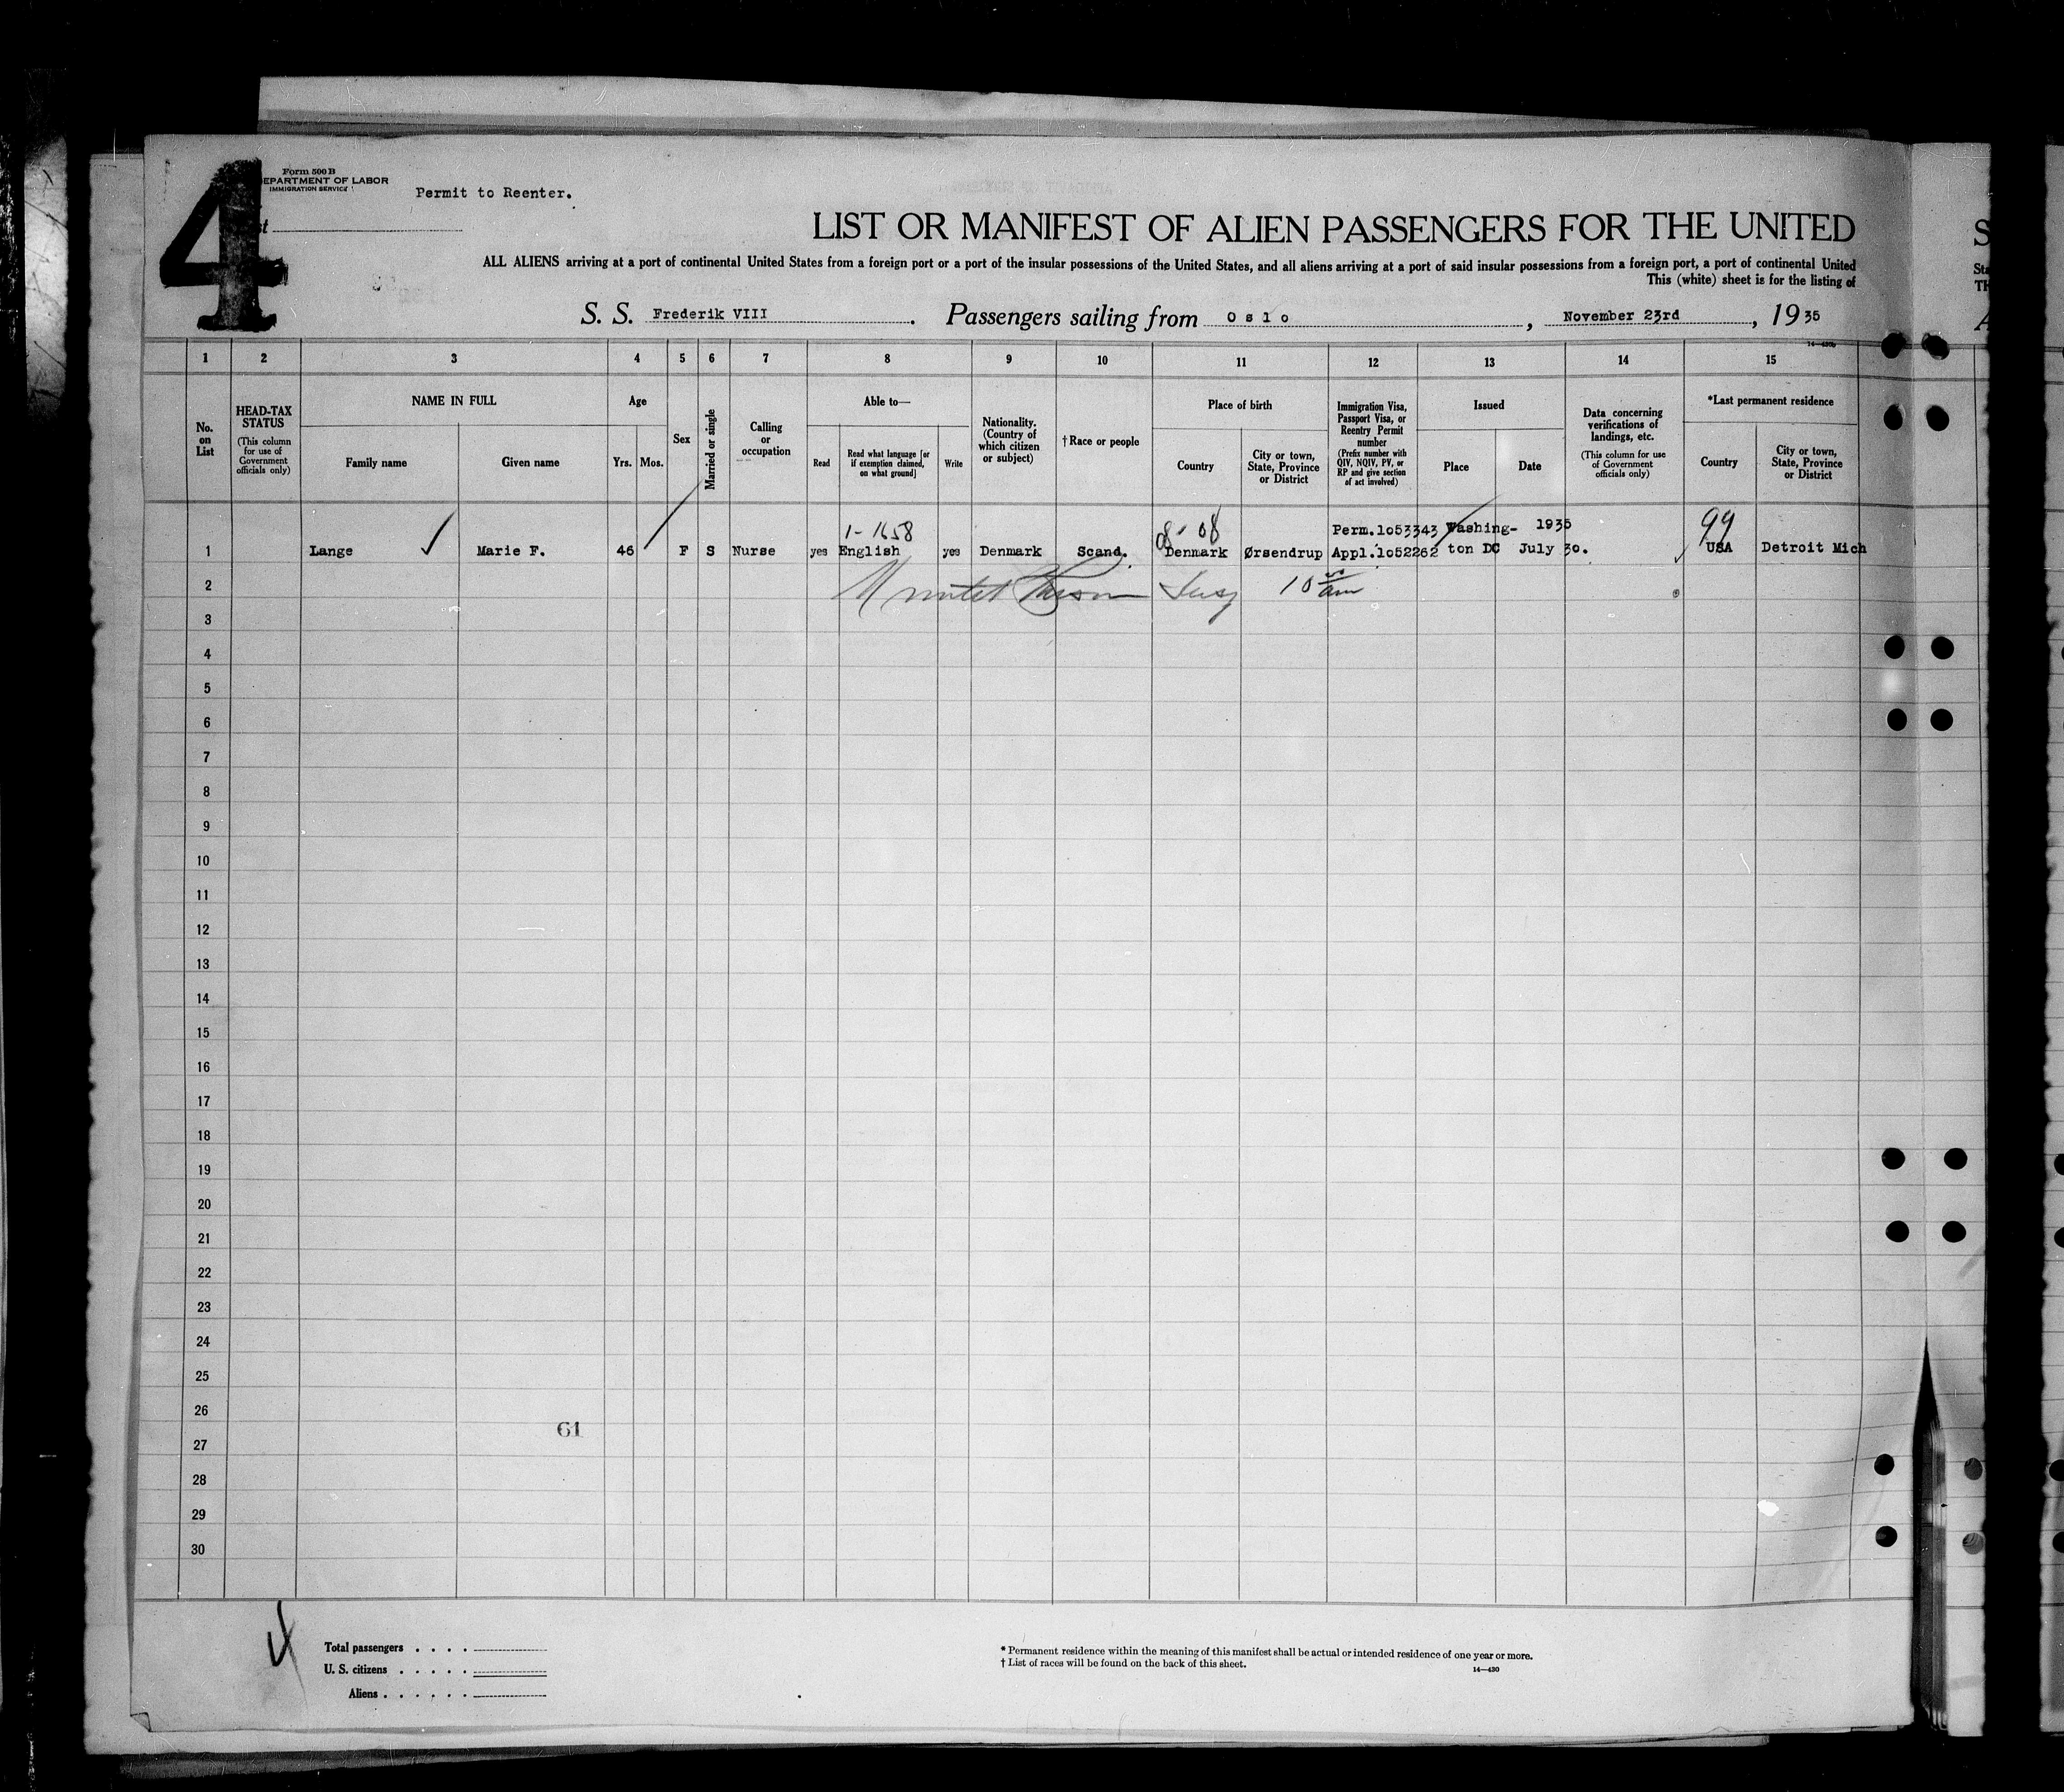 4
Form 500 B
DEPARTMENT OF LABOR
IMMIGRATION SERVICE
Permit to Reenter.
LIST OR MANIFEST OF ALIEN PASSENGERS FOR THE UNITED
ALL ALIENS arriving at a port of continental United States from a foreign port or a port of the insular possessions of the United States, and all aliens arriving at a port of said insular possessions from a foreign port, a port of continental United
This (white) sheet is for the listing of
S. S. Frederik VIII . Passengers sailing from Oslo , November 23rd , 1935
1 2 3 4 5 6 7 8 9 10 11 12 13 14 15
No. on List
HEAD-TAX STATUS
(This column for use of Government officials only)
NAME IN FULL
Family name
Given name
Age
Yrs. Mos.
Sex
Married or single
Calling or occupation
Able to—
Read
Read what language [or if exemption claimed, on what ground]
Write
Nationality. (Country of which citizen or subject)
†Race or people
Place of birth
Country
City or town, State, Province or District
Immigration Visa, Passport Visa, or Reentry Permit number
(Prefix number with QIV, NQIV, PV, or RP and give section of act involved)
Issued
Place
Date
Data concerning verifications of landings, etc.
(This column for use of Government officials only)
*Last permanent residence
Country
City or town, State, Province or District
1-1658 08-08 Perm.1o53343 Washing- 1935 99
1 Lange Marie F. 46 F S Nurse yes English yes Denmark Scand. Denmark Ørsendrup Appl.1o52262 ton DC July 30. USA Detroit Mich
2 10 am
3
4
5
6
7
8
9
10
11
12
13
14
15
16
17
18
19
20
21
22
23
24
25
26
61
27
28
29
30
Total passengers . . . .
U. S. citizens . . . . .
Aliens . . . . . .
* Permanent residence within the meaning of this manifest shall be actual or intended residence of one year or more.
† List of races will be found on the back of this sheet.
14—430